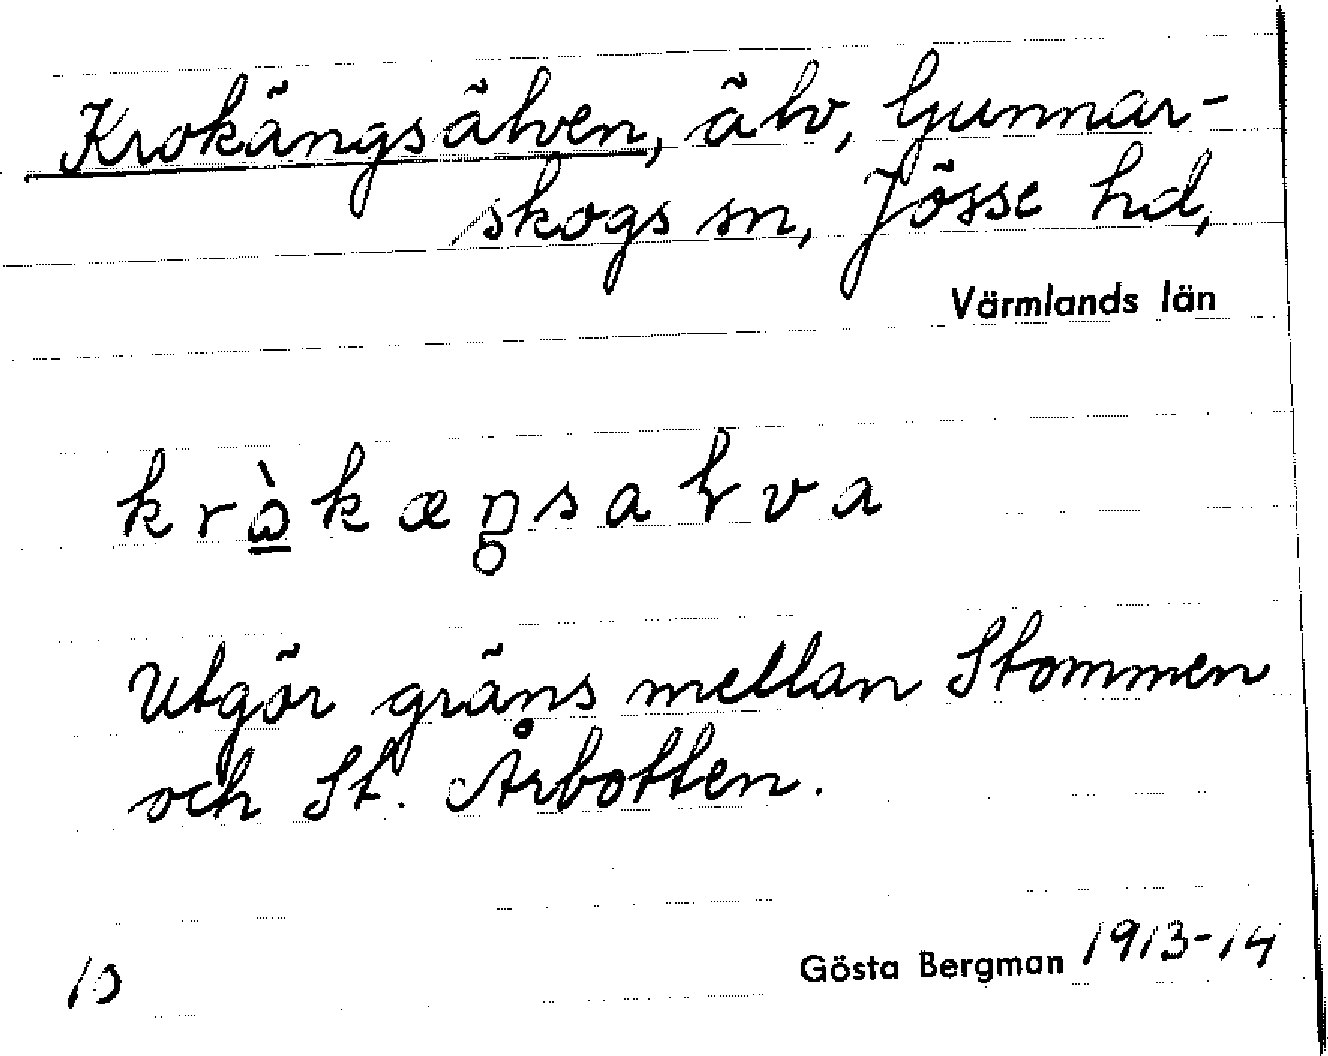 Krokängsälven, älv, Gunnar-
skogs sn, Jösse hd,
Värmlands län
Utgör gräns mellan Stommen
och St. Årbotten.
10
Gösta Bergman 1913-14